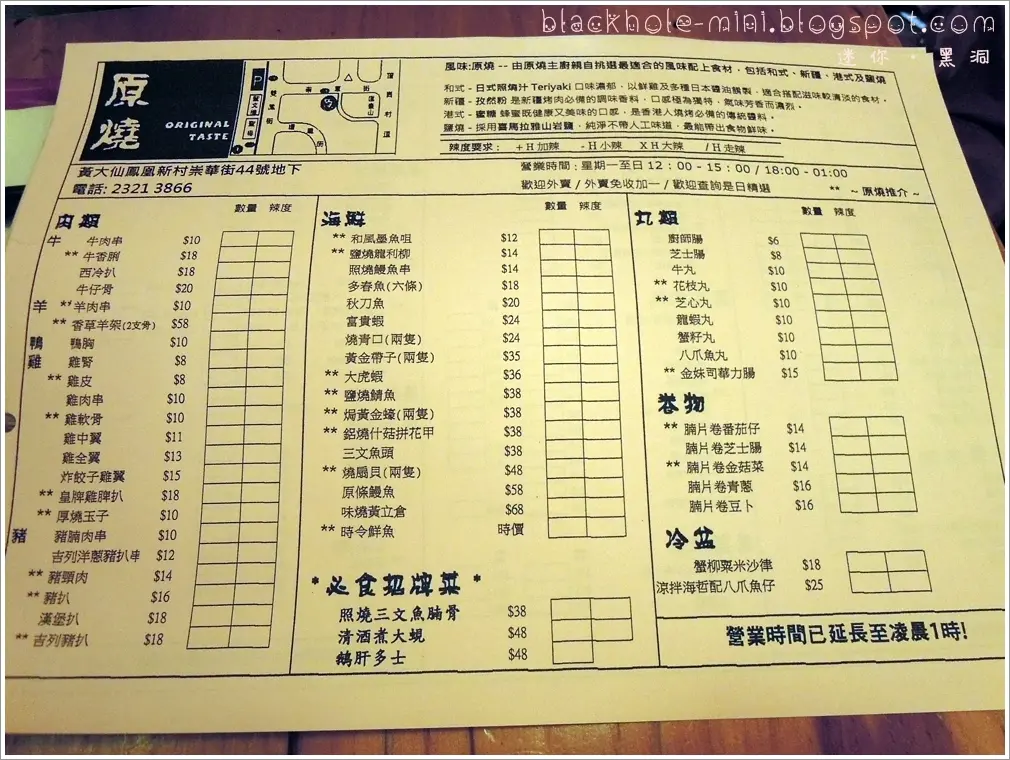 blackhole-mini.blogspot.com
迷你．黑洞
原燒
ORIGINAL
TASTE
P
風味:原燒 -- 由原燒主廚親自挑選最適合的風味配上食材，包括和式、新疆、港式及鹽燒
和式 - 日式照燒汁 Teriyaki 口味濃郁，以鮮雞及多種日本醬油醃製，適合搭配滋味較清淡的食材。
新疆 - 孜然粉 是新疆烤肉必備的調味香料，口感極為獨特，氣味芳香而濃烈。
港式 - 蜜糖 蜂蜜既健康又美味的口感，是香港人燒烤必備的傳統醬料。
鹽燒 - 採用喜馬拉雅山岩鹽，純淨不帶人工味道，最能帶出食物鮮味。
辣度要求： +H加辣 -H小辣 XH大辣 /H走辣
黃大仙鳳凰新村崇華街44號地下
電話: 2321 3866
營業時間：星期一至日 12：00 - 15：00 / 18:00 - 01:00
歡迎外賣 / 外賣免收加一 / 歡迎查詢是日精選
** ~ 原燒推介 ~
肉類 數量 辣度
牛 牛肉串 $10
** 牛香脷 $18
西冷扒 $18
牛仔骨 $20
羊 ** 羊肉串 $10
** 香草羊架(2支骨) $58
鴨 鴨胸 $10
雞 雞腎 $8
** 雞皮 $8
雞肉串 $10
** 雞軟骨 $10
雞中翼 $11
雞全翼 $13
炸餃子雞翼 $15
** 皇牌雞脾扒 $18
** 厚燒玉子 $10
豬 豬腩肉串 $10
吉列洋蔥豬扒串 $12
** 豬頸肉 $14
** 豬扒 $16
漢堡扒 $18
** 吉列豬扒 $18
海鮮 數量 辣度
** 和風墨魚咀 $12
** 鹽燒龍利柳 $14
照燒鰻魚串 $14
多春魚(六條) $18
秋刀魚 $20
富貴蝦 $24
燒青口(兩隻) $24
黃金帶子(兩隻) $35
** 大虎蝦 $36
** 鹽燒鯖魚 $38
** 焗黃金蠔(兩隻) $38
** 鋁燒什菇拼花甲 $38
三文魚頭 $38
** 燒扇貝(兩隻) $48
原條鰻魚 $58
味燒黃立倉 $68
** 時令鮮魚 時價
* 必食招牌菜 *
照燒三文魚腩骨 $38
清酒煮大蜆 $48
鵝肝多士 $48
丸類 數量 辣度
廚師腸 $6
芝士腸 $8
牛丸 $10
** 花枝丸 $10
** 芝心丸 $10
龍蝦丸 $10
蟹籽丸 $10
八爪魚丸 $10
** 金妹司華力腸 $15
卷物
** 腩片卷番茄仔 $14
腩片卷芝士腸 $14
** 腩片卷金菇菜 $14
腩片卷青蔥 $16
腩片卷豆卜 $16
冷盆
蟹柳粟米沙律 $18
涼拌海哲配八爪魚仔 $25
營業時間已延長至凌晨1時!